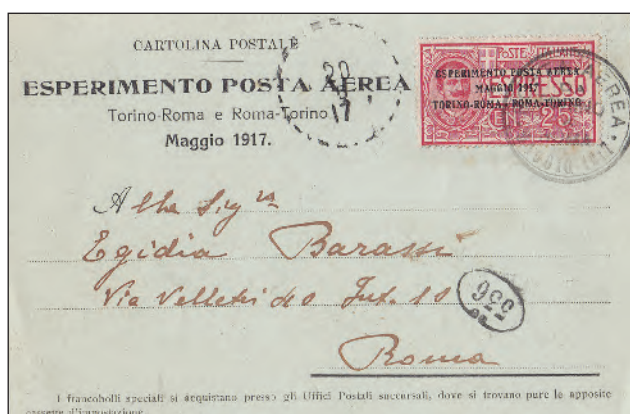 CARTOLINA POSTALE
ESPERIMENTO POSTA AEREA
Torino-Roma e Roma-Torino
Maggio 1917.
20
17
POSTE ITALIANE
ESPRESSO
ESPERIMENTO POSTA AEREA
MAGGIO 1917
TORINO-ROMA · ROMA-TORINO
CENT. 25
AEREA
Alla Sigra
Egidia Barassi
Via Velletri
Int. 10
936
Roma
I francobolli speciali si acquistano presso gli Uffici Postali succursali, dove si trovano pure le apposite
cassette d'impostazione.